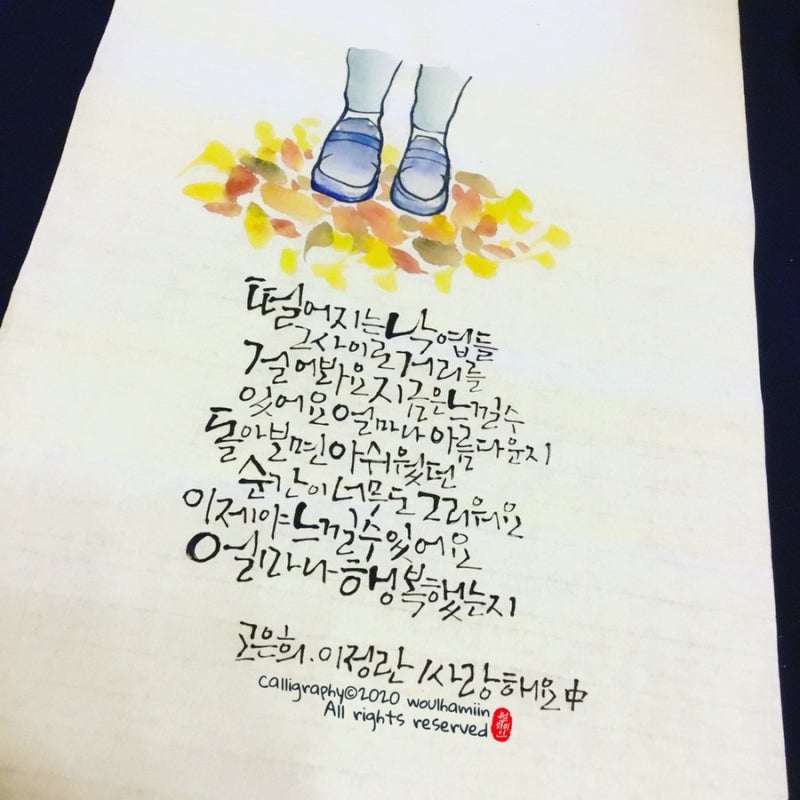 떨어지는 낙엽들
그 사이로 거리를
걸어봐요 지금은 느낄 수
있어요 얼마나 아름다운지
돌아보면 아쉬웠던
순간이 너무도 그리워요
이제야 느낄 수 있어요
얼마나 행복했는지
고은희.이정란/사랑해요 中
calligraphy©2020 woulhamiin
All rights reserved